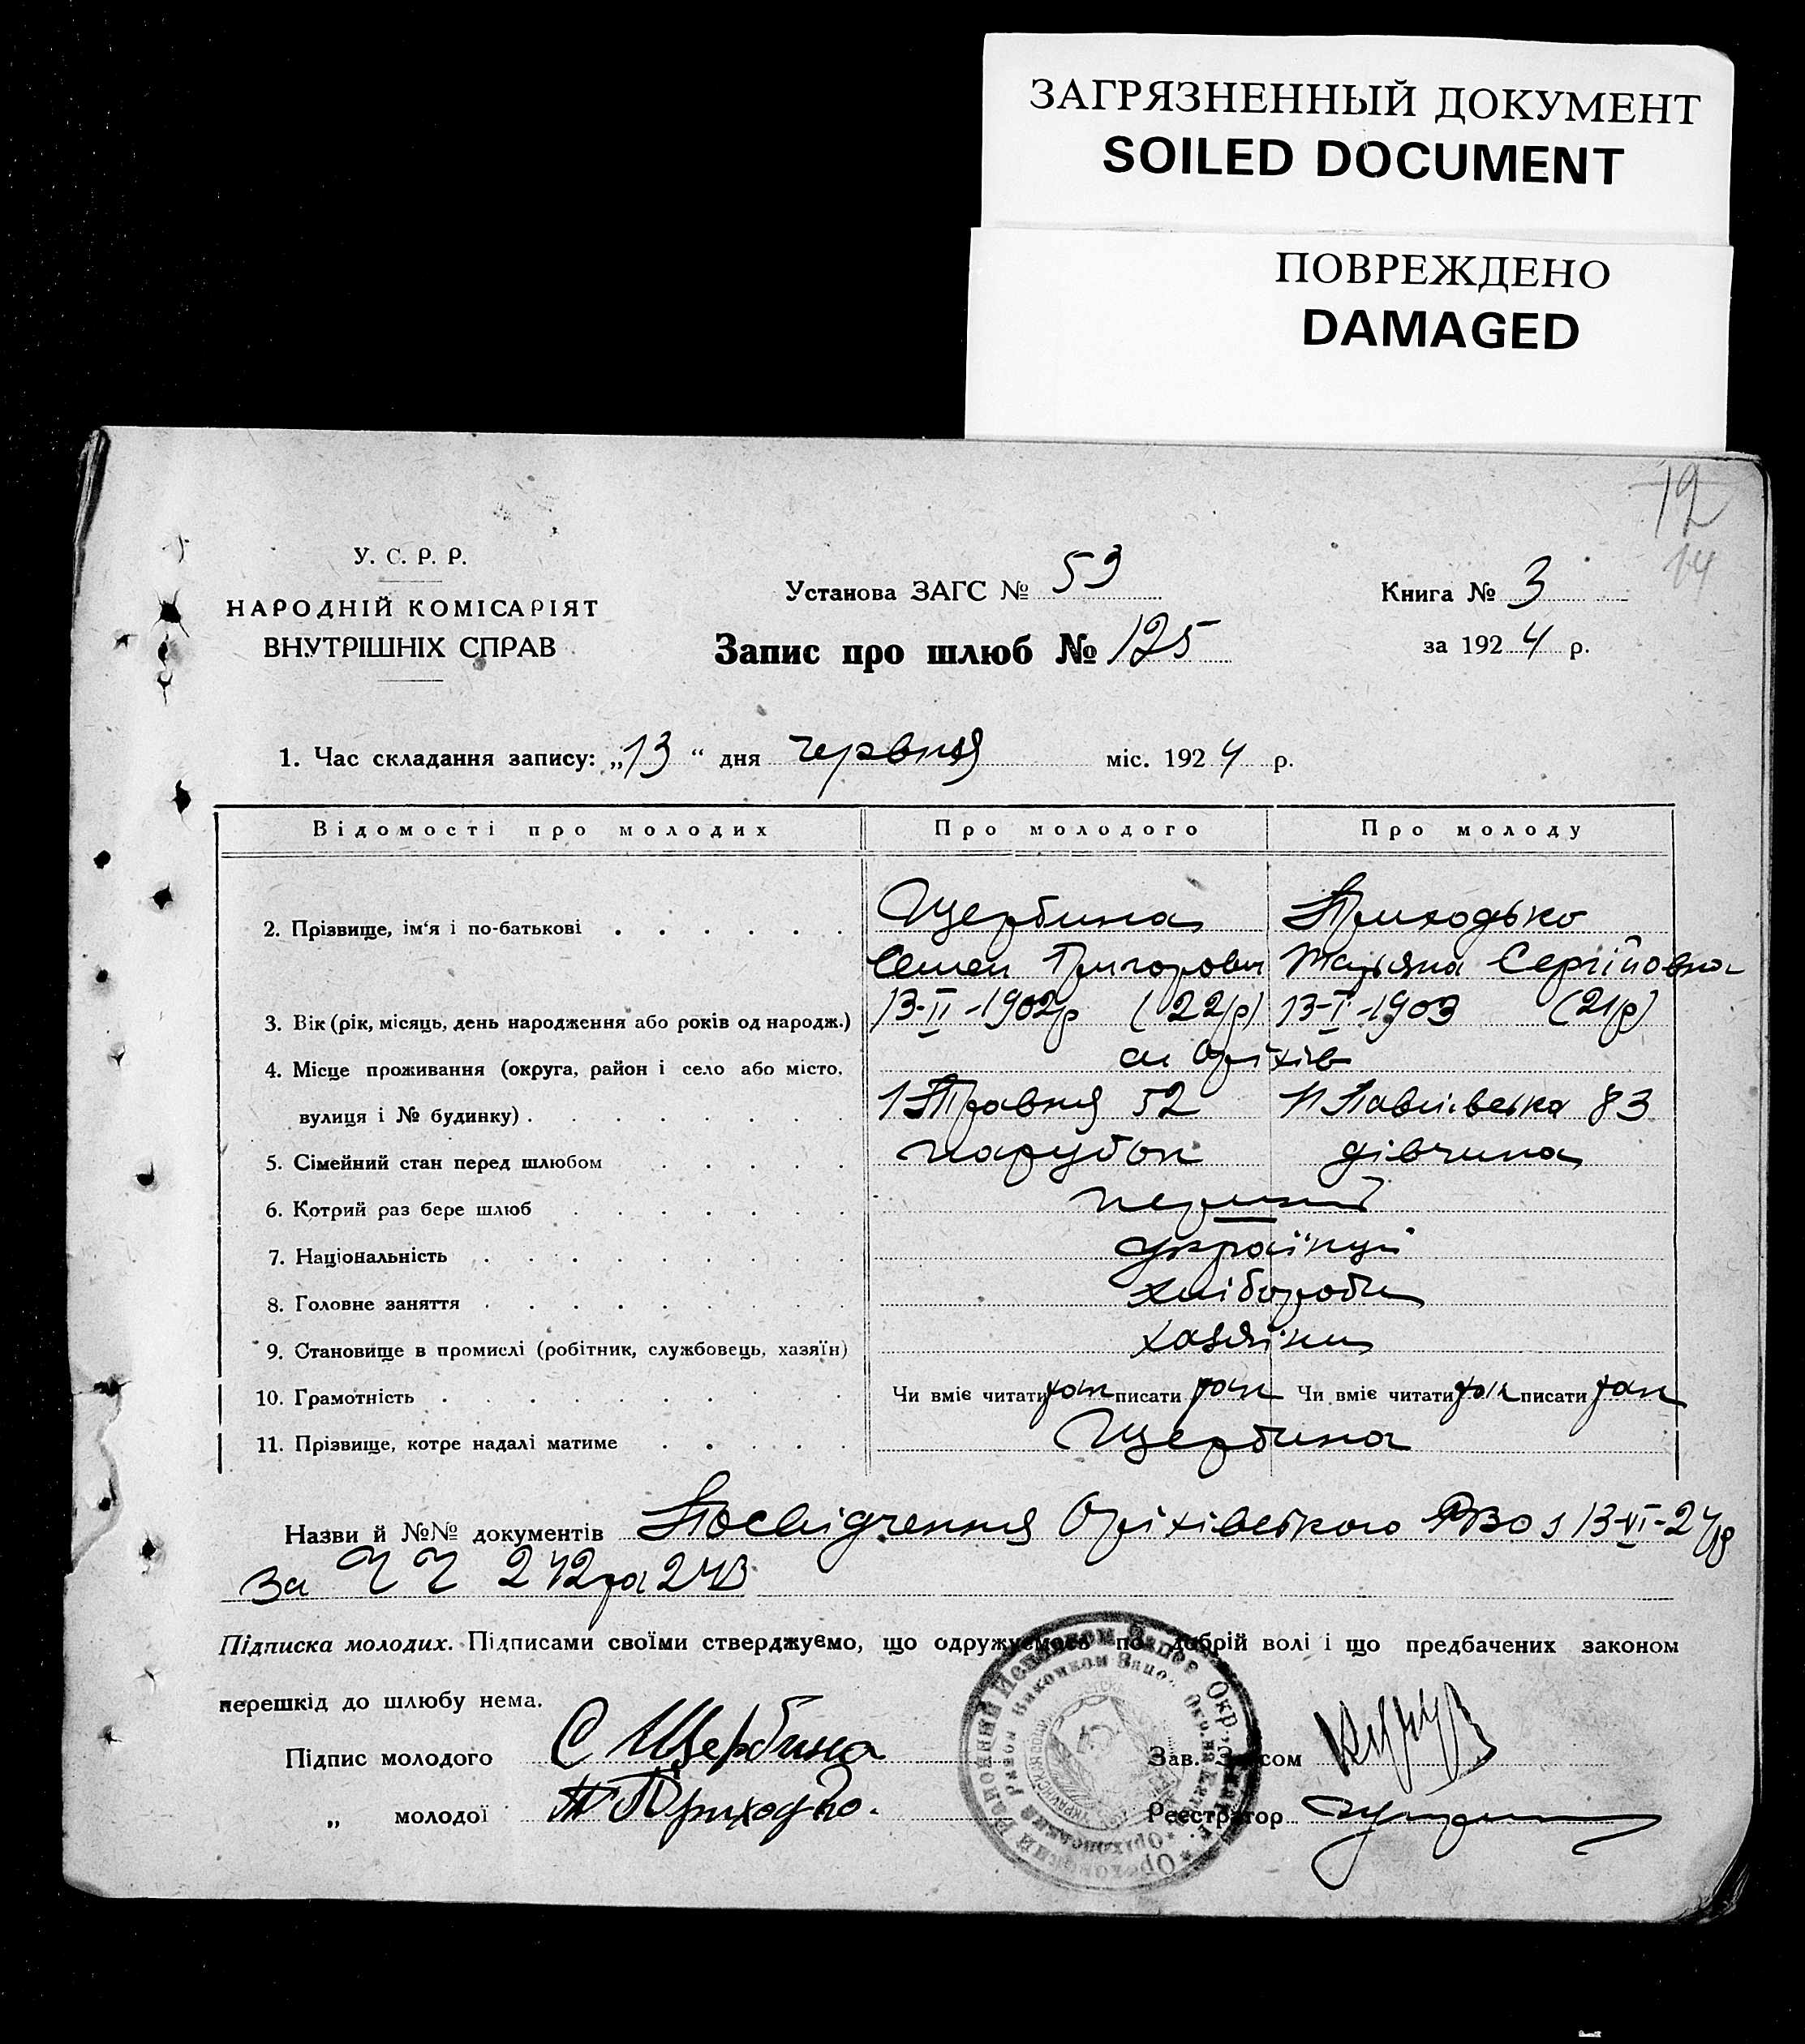 ЗАГРЯЗНЕННЫЙ ДОКУМЕНТ
SOILED DOCUMENT
ПОВРЕЖДЕНО
DAMAGED
12
14
У. С. Р. Р.
НАРОДНІЙ КОМІСАРІЯТ
ВНУТРІШНІХ СПРАВ
Установа ЗАГС № 59
Запис про шлюб № 125
Книга № 3
за 1924 р.
1. Час складання запису: „13“ дня червня міс. 1924 р.
Відомості про молодих Про молодого Про молоду
2. Прізвище, ім'я і по-батькові Щербина Приходько
Семен Григорович Татьяна Сергіїовна
3. Вік (рік, місяць, день народження або років од народж.) 13-II-1902р (22р) 13-I-1903 (21р)
4. Місце проживання (округа, район і село або місто, м Оріхів
вулиця і № будинку) 1 Травня 52 Н Павлівська 83
5. Сімейний стан перед шлюбом парубок дівчина
6. Котрий раз бере шлюб перший
7. Національність українці
8. Головне заняття хлібороби
9. Становище в промислі (робітник, службовець, хазяїн) хазяїни
10. Грамотність Чи вміє читати так писати так Чи вміє читати так писати так
11. Прізвище, котре надалі матиме Щербина
Назви й №№ документів Посвідчення Оріхівського РВО з 13-VI-24р
за Ч Ч 242 та 243
Підписка молодих. Підписами своїми стверджуємо, що одружуємось по добрій волі і що предбачених законом
перешкід до шлюбу нема.
Підпис молодого С Щербина Зав. Загсом
„ молодої Т Приходько. Реєстратор